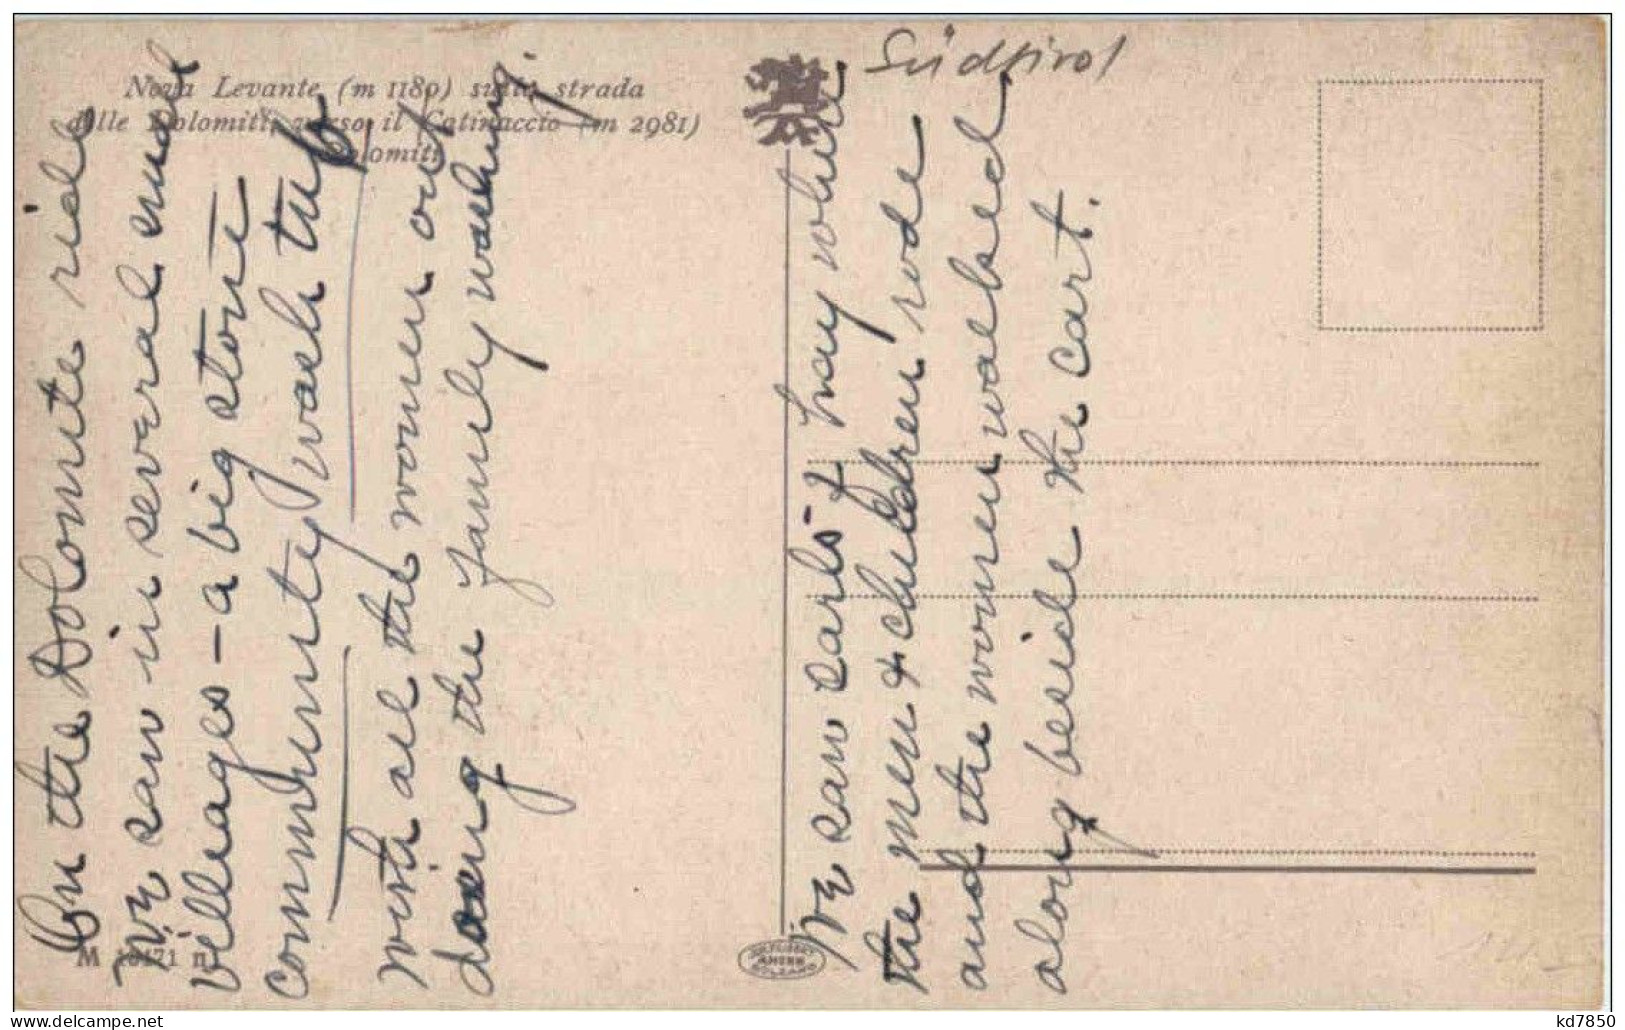 Nova Levante (m 1180) sulla strada
delle Dolomiti, verso il Catinaccio (m 2981)
Dolomiti
Südtirol
On the Dolomite ride
we saw in several small
villages - a big stone
community wash tub
with all the women out
doing the family washing.
We saw carts of hay while
the men & children rode
and the women walked
along beside the cart.
M
71 n
AMONN
BOLZANO
kd7850